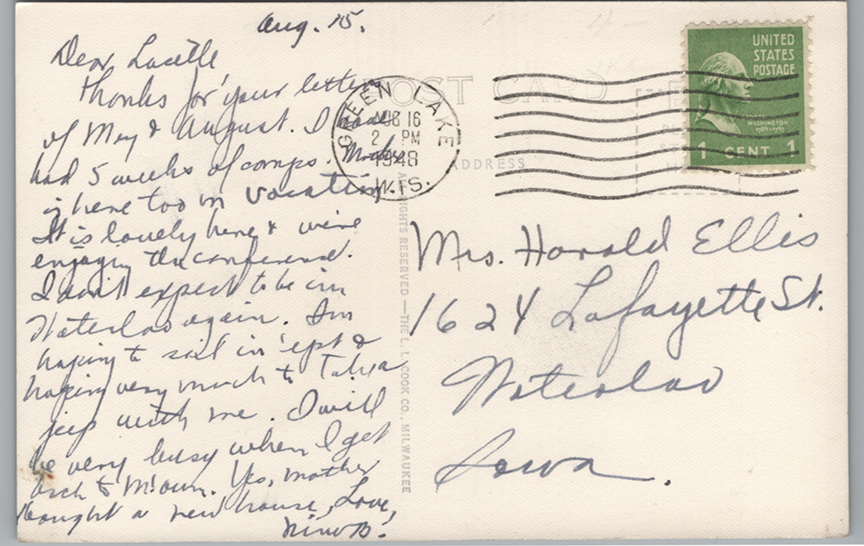 Aug. 15.
Dear Lucille
Thanks for your letter
of May & August. I have
had 5 weeks of camps.
is here too on vacation
It is lovely here & we're
enjoying the conference.
I don't expect to be in
Waterloo again. I'm
hoping to sail in Sept &
hoping very much to take a
jeep with me. I will
be very busy when I get
back to M'oun. Yes, mother
bought a new house, Love,
POST CARD
ADDRESS
GREEN LAKE
AUG 16
2 PM
1948
WIS.
UNITED
STATES
POSTAGE
WASHINGTON
1 CENT 1
ALL RIGHTS RESERVED — THE L. L. COOK CO., MILWAUKEE
Mrs. Harold Ellis
1624 Lafayette St.
Waterloo
Iowa.